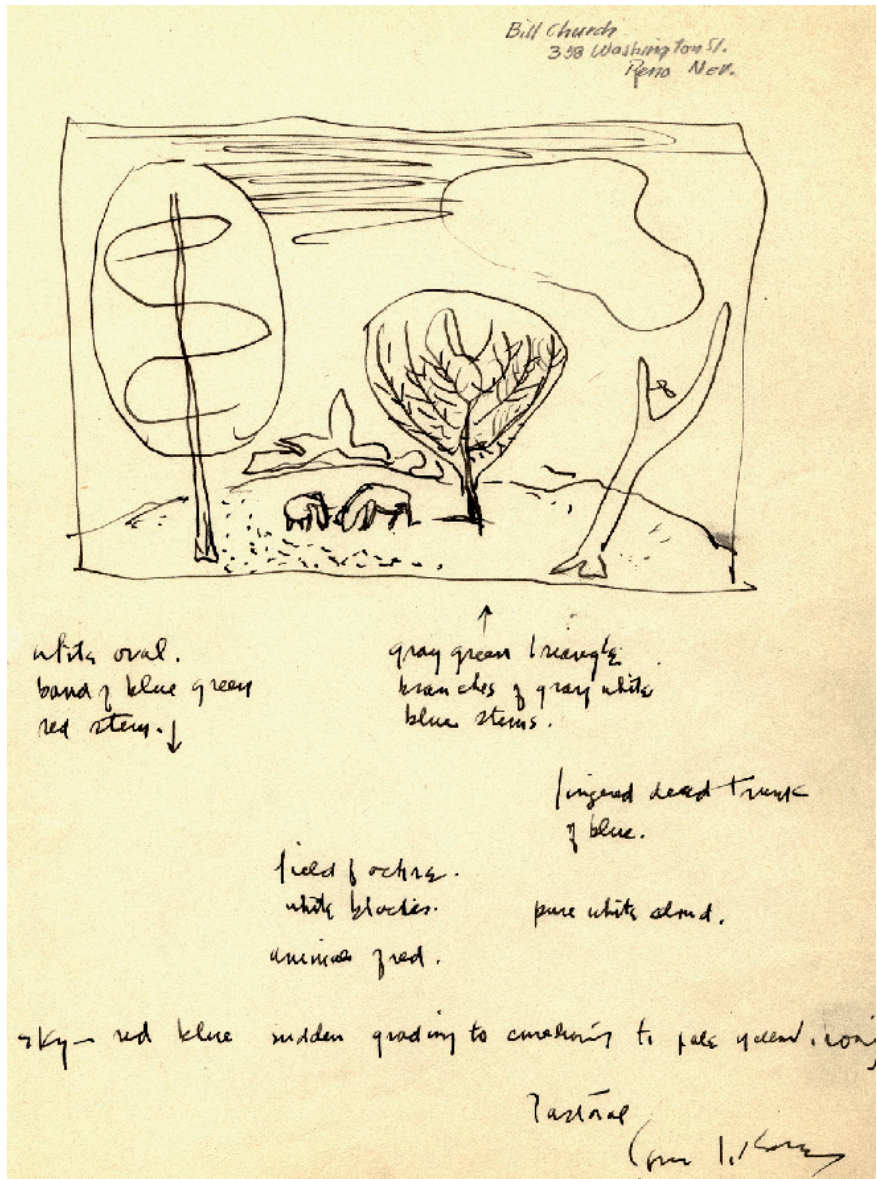 Bill Church
358 Washington St.
Reno Nev.
white oval.
band of blue green
red stem.
gray green triangle
branches of gray white
blue stems.
fingered dead trunk
of blue.
field of ochre.
white blocks.
pure white cloud.
animals of red.
sky — red blue sudden grading to to pale
Pastoral